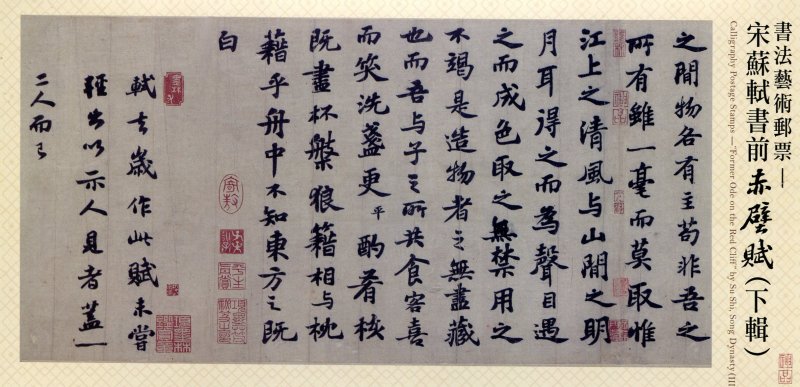 書法藝術郵票—
宋蘇軾書前赤壁賦(下輯)
Calligraphy Postage Stamps — "Former Ode on the Red Cliff" by Su Shi, Song Dynasty (III
之間物各有主苟非吾之
所有雖一毫而莫取惟
江上之清風与山間之明
月耳得之而為聲目遇
之而成色取之無禁用之
不竭是造物者之無盡藏
也而吾与子之所共食客喜
而笑洗盞更平酌肴核
既盡杯槃狼籍相与枕
藉乎舟中不知東方之既
白
軾去歲作此賦未嘗
輕出以示人見者蓋一
二人而已